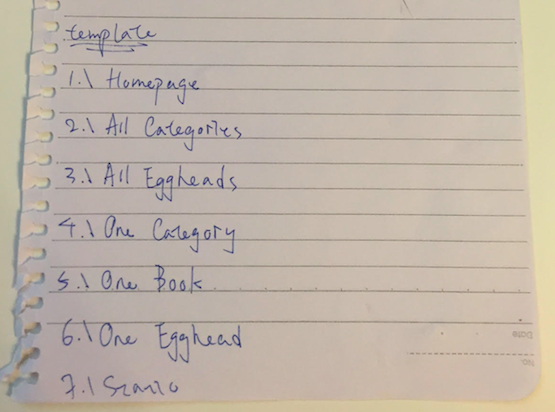 template
1.\ Homepage
2.\ All Categories
3.\ All Eggheads
4.\ One Category
5.\ One Book
6.\ One Egghead
7.\
Date
No.